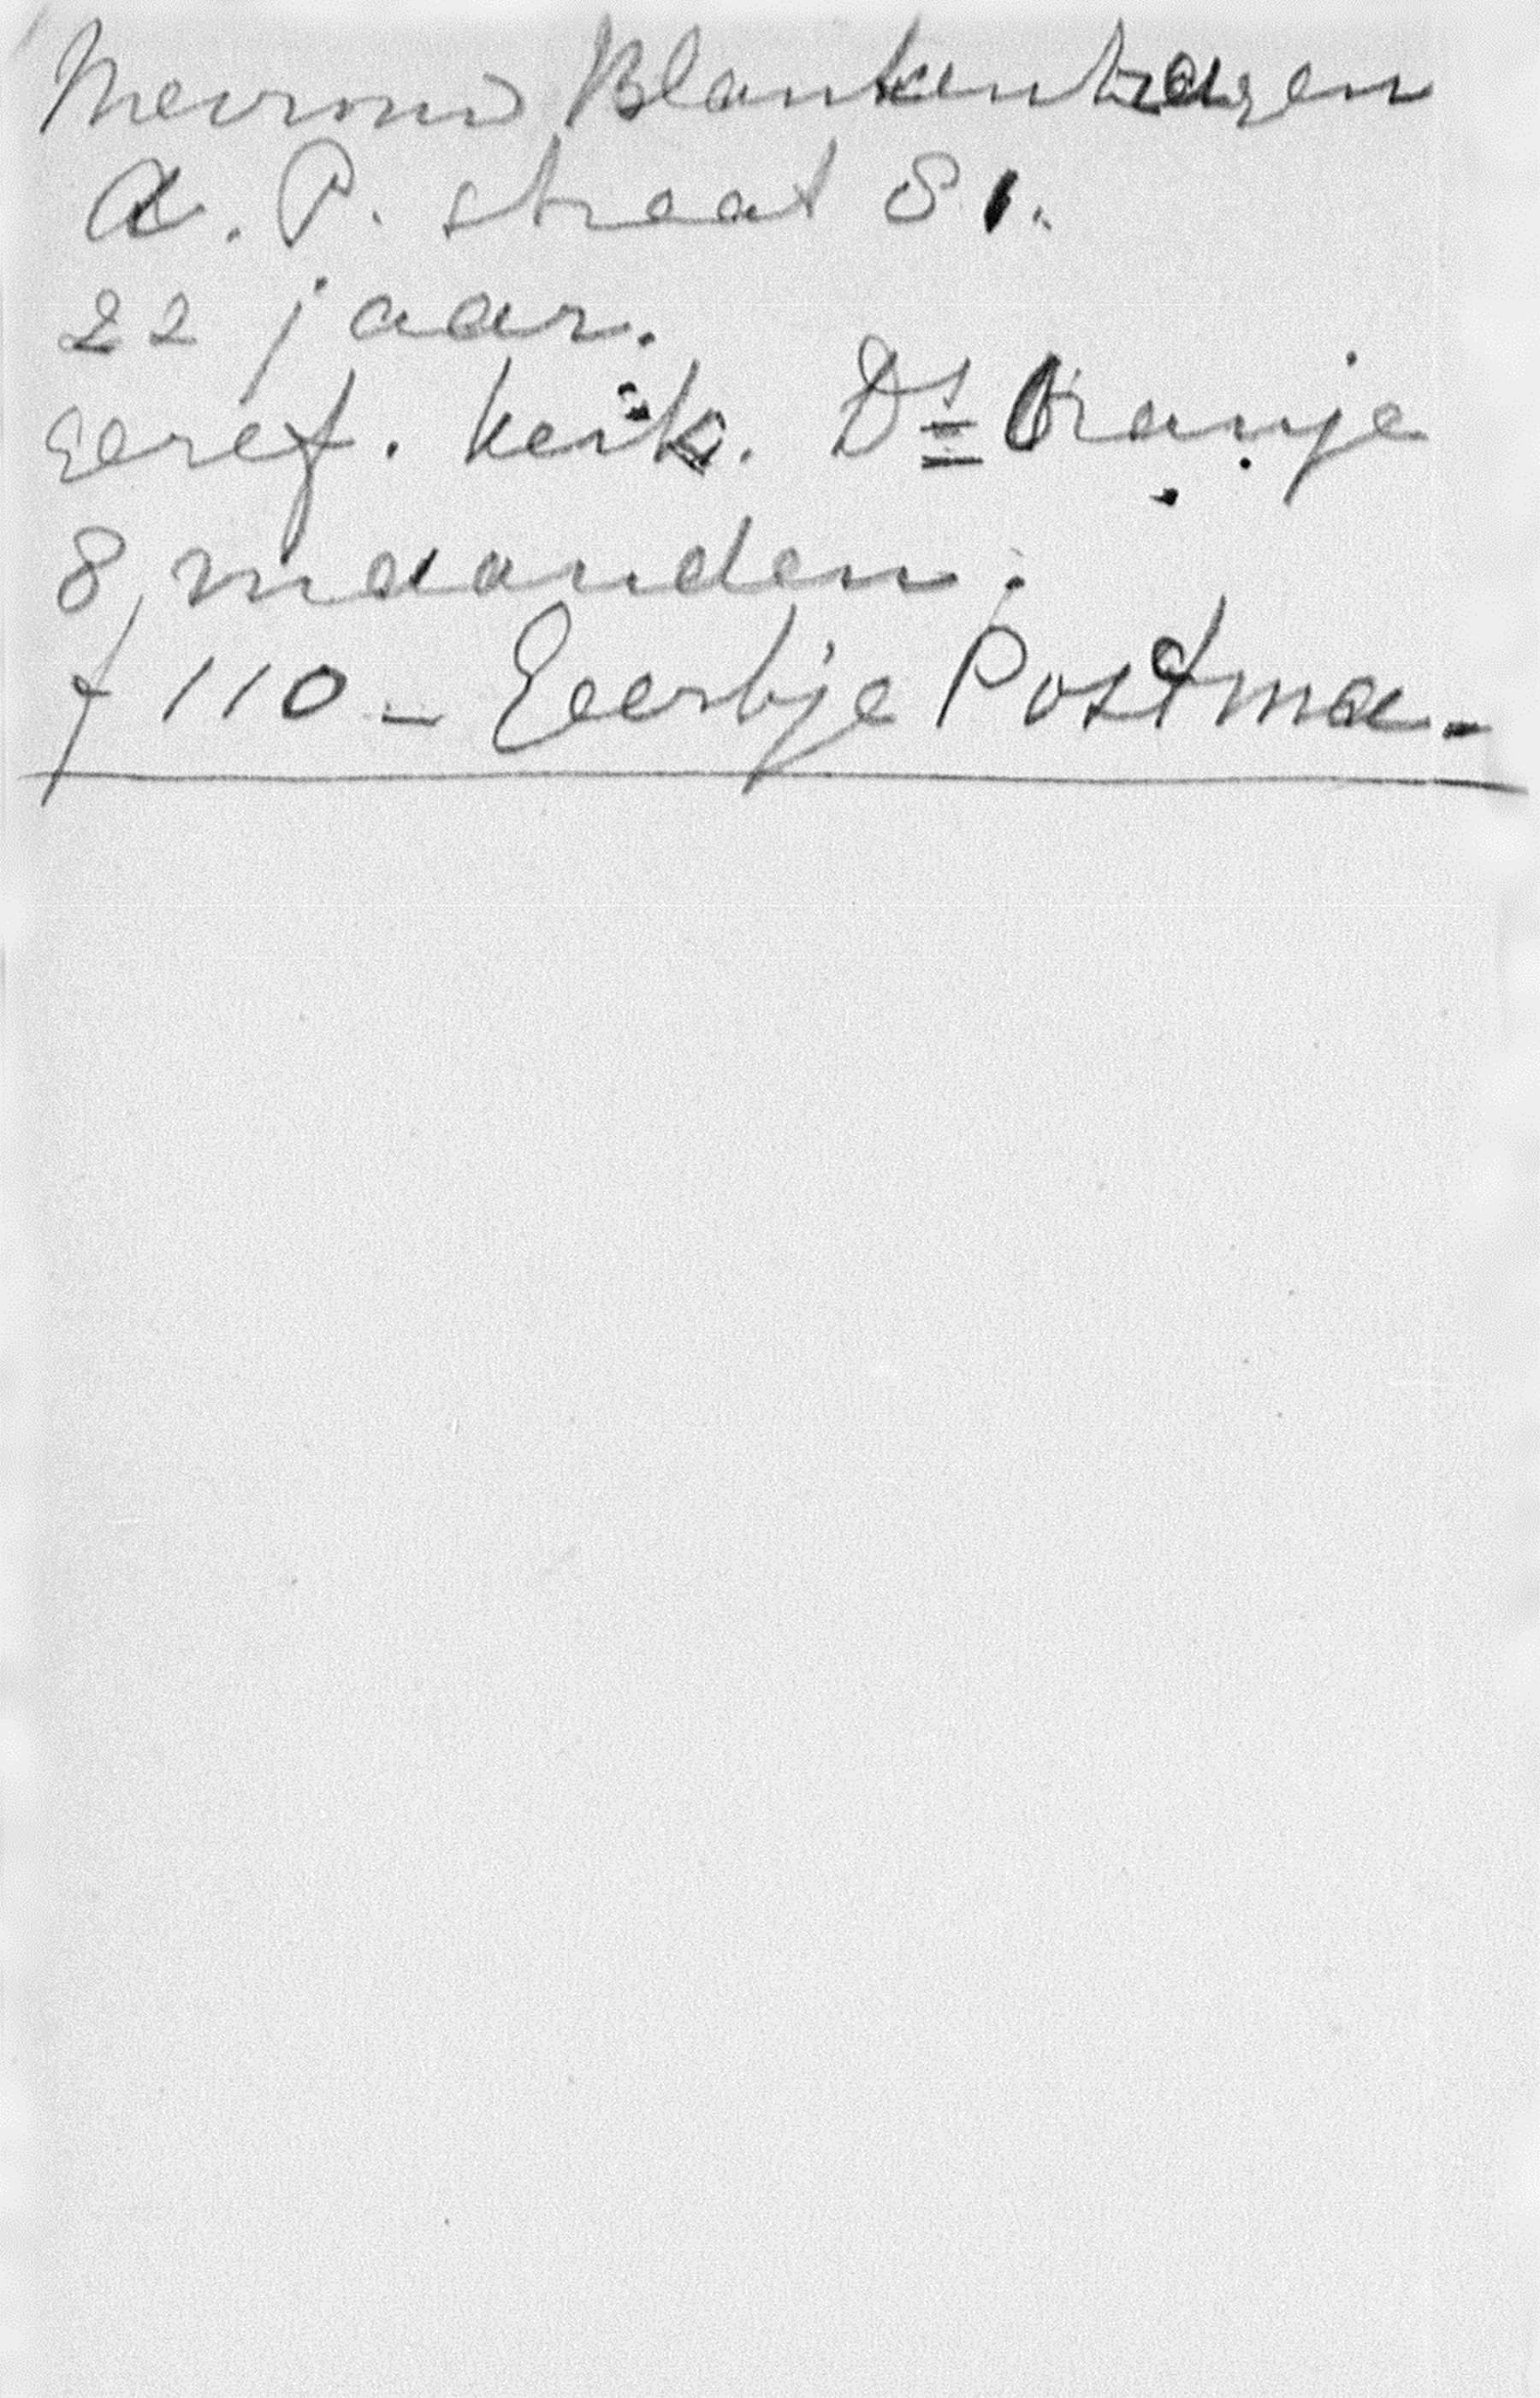 Mevrouw Blankenhagen
A. P. straat 81.
22 jaar.
Geref. Kerk. Ds Oranje
8 maanden.
f 110 - Geertje Postma.